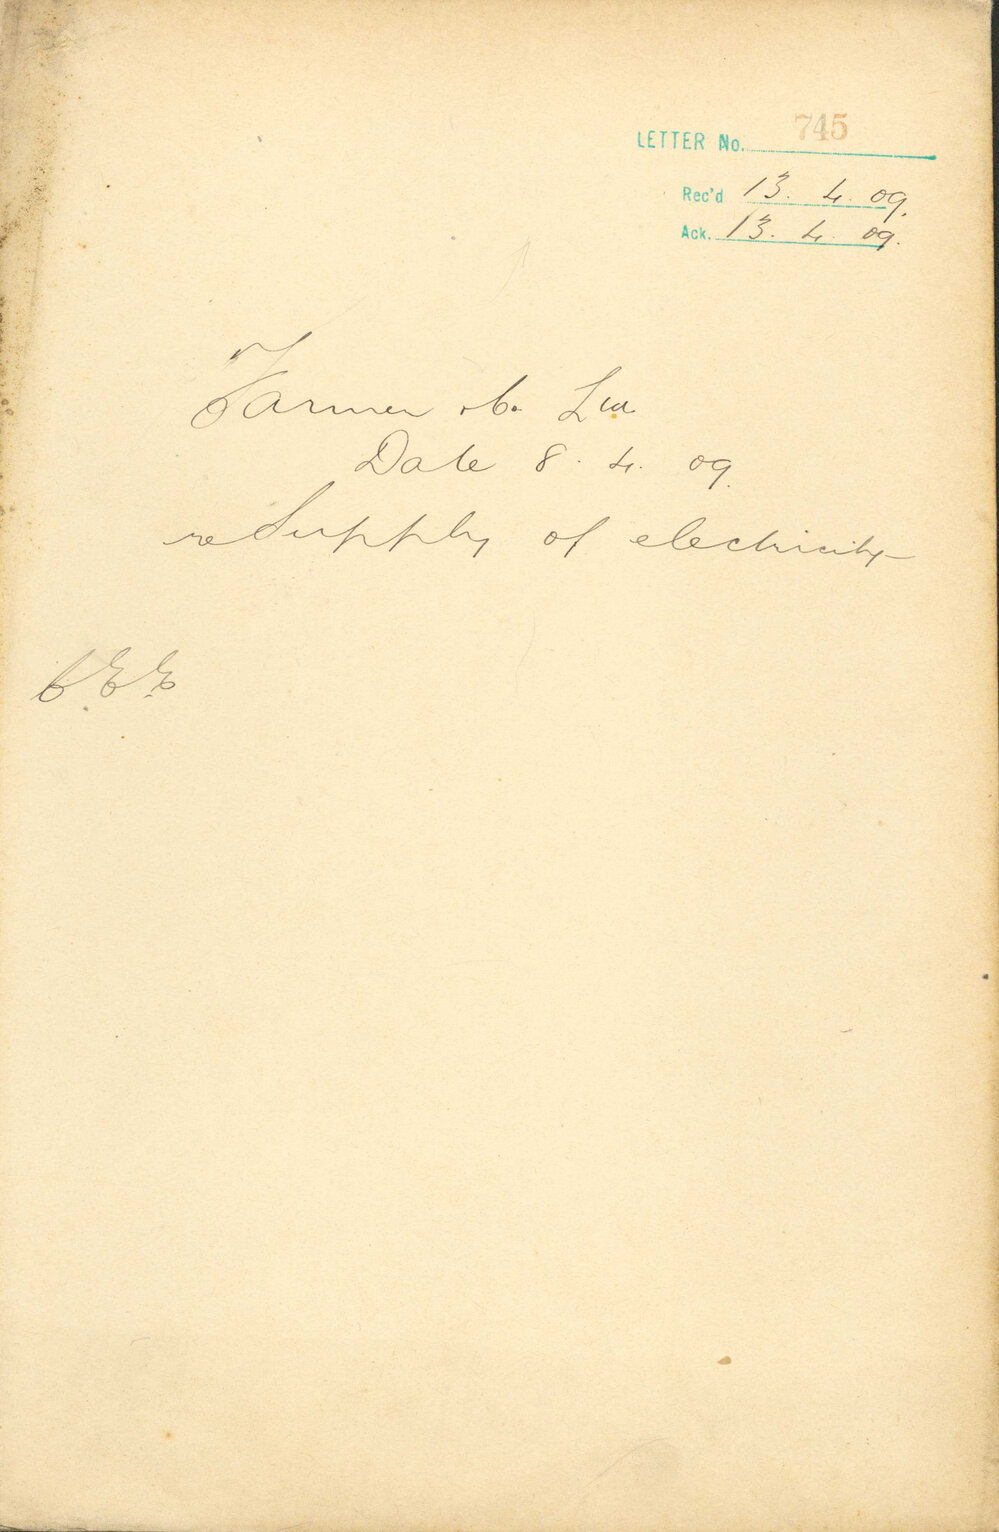 LETTER No. 745
Rec'd 13. 4. 09.
Ack. 13. 4. 09.
Farmer & Co. Ltd
Date 8. 4. 09.
re Supply of electricity
C.E.E.